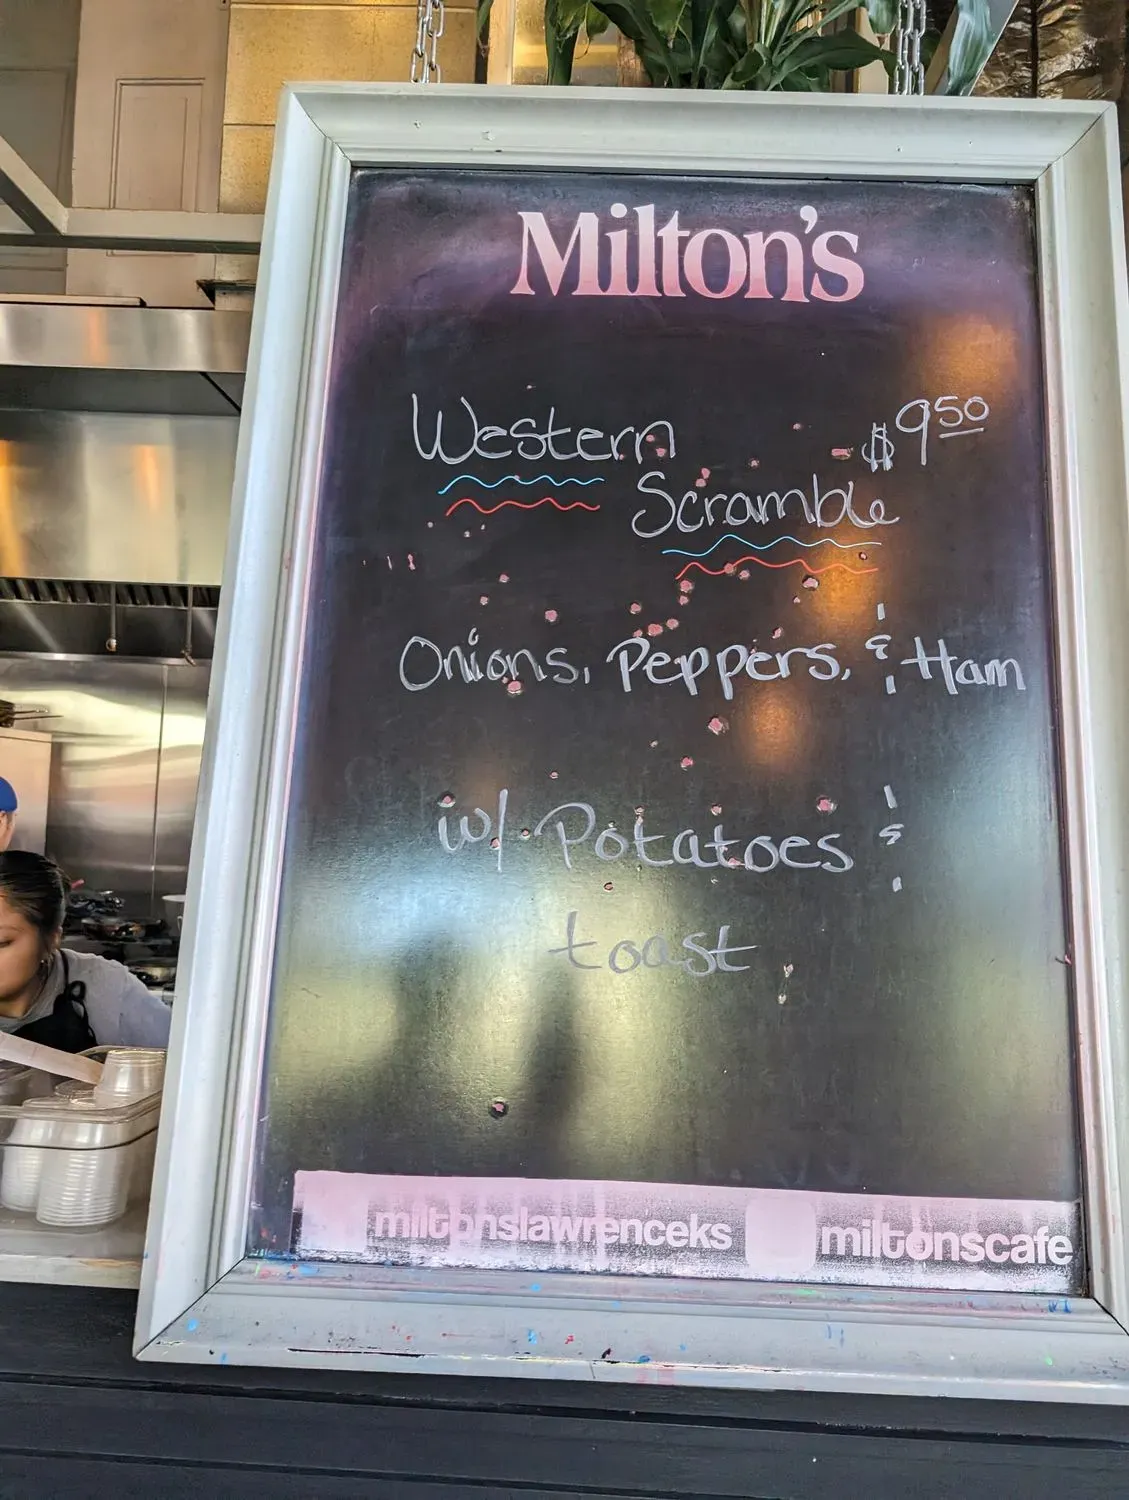 Milton's
Western $9.50
Scramble
Onions, Peppers, & Ham
w/ Potatoes &
toast
miltonslawrenceks miltonscafe